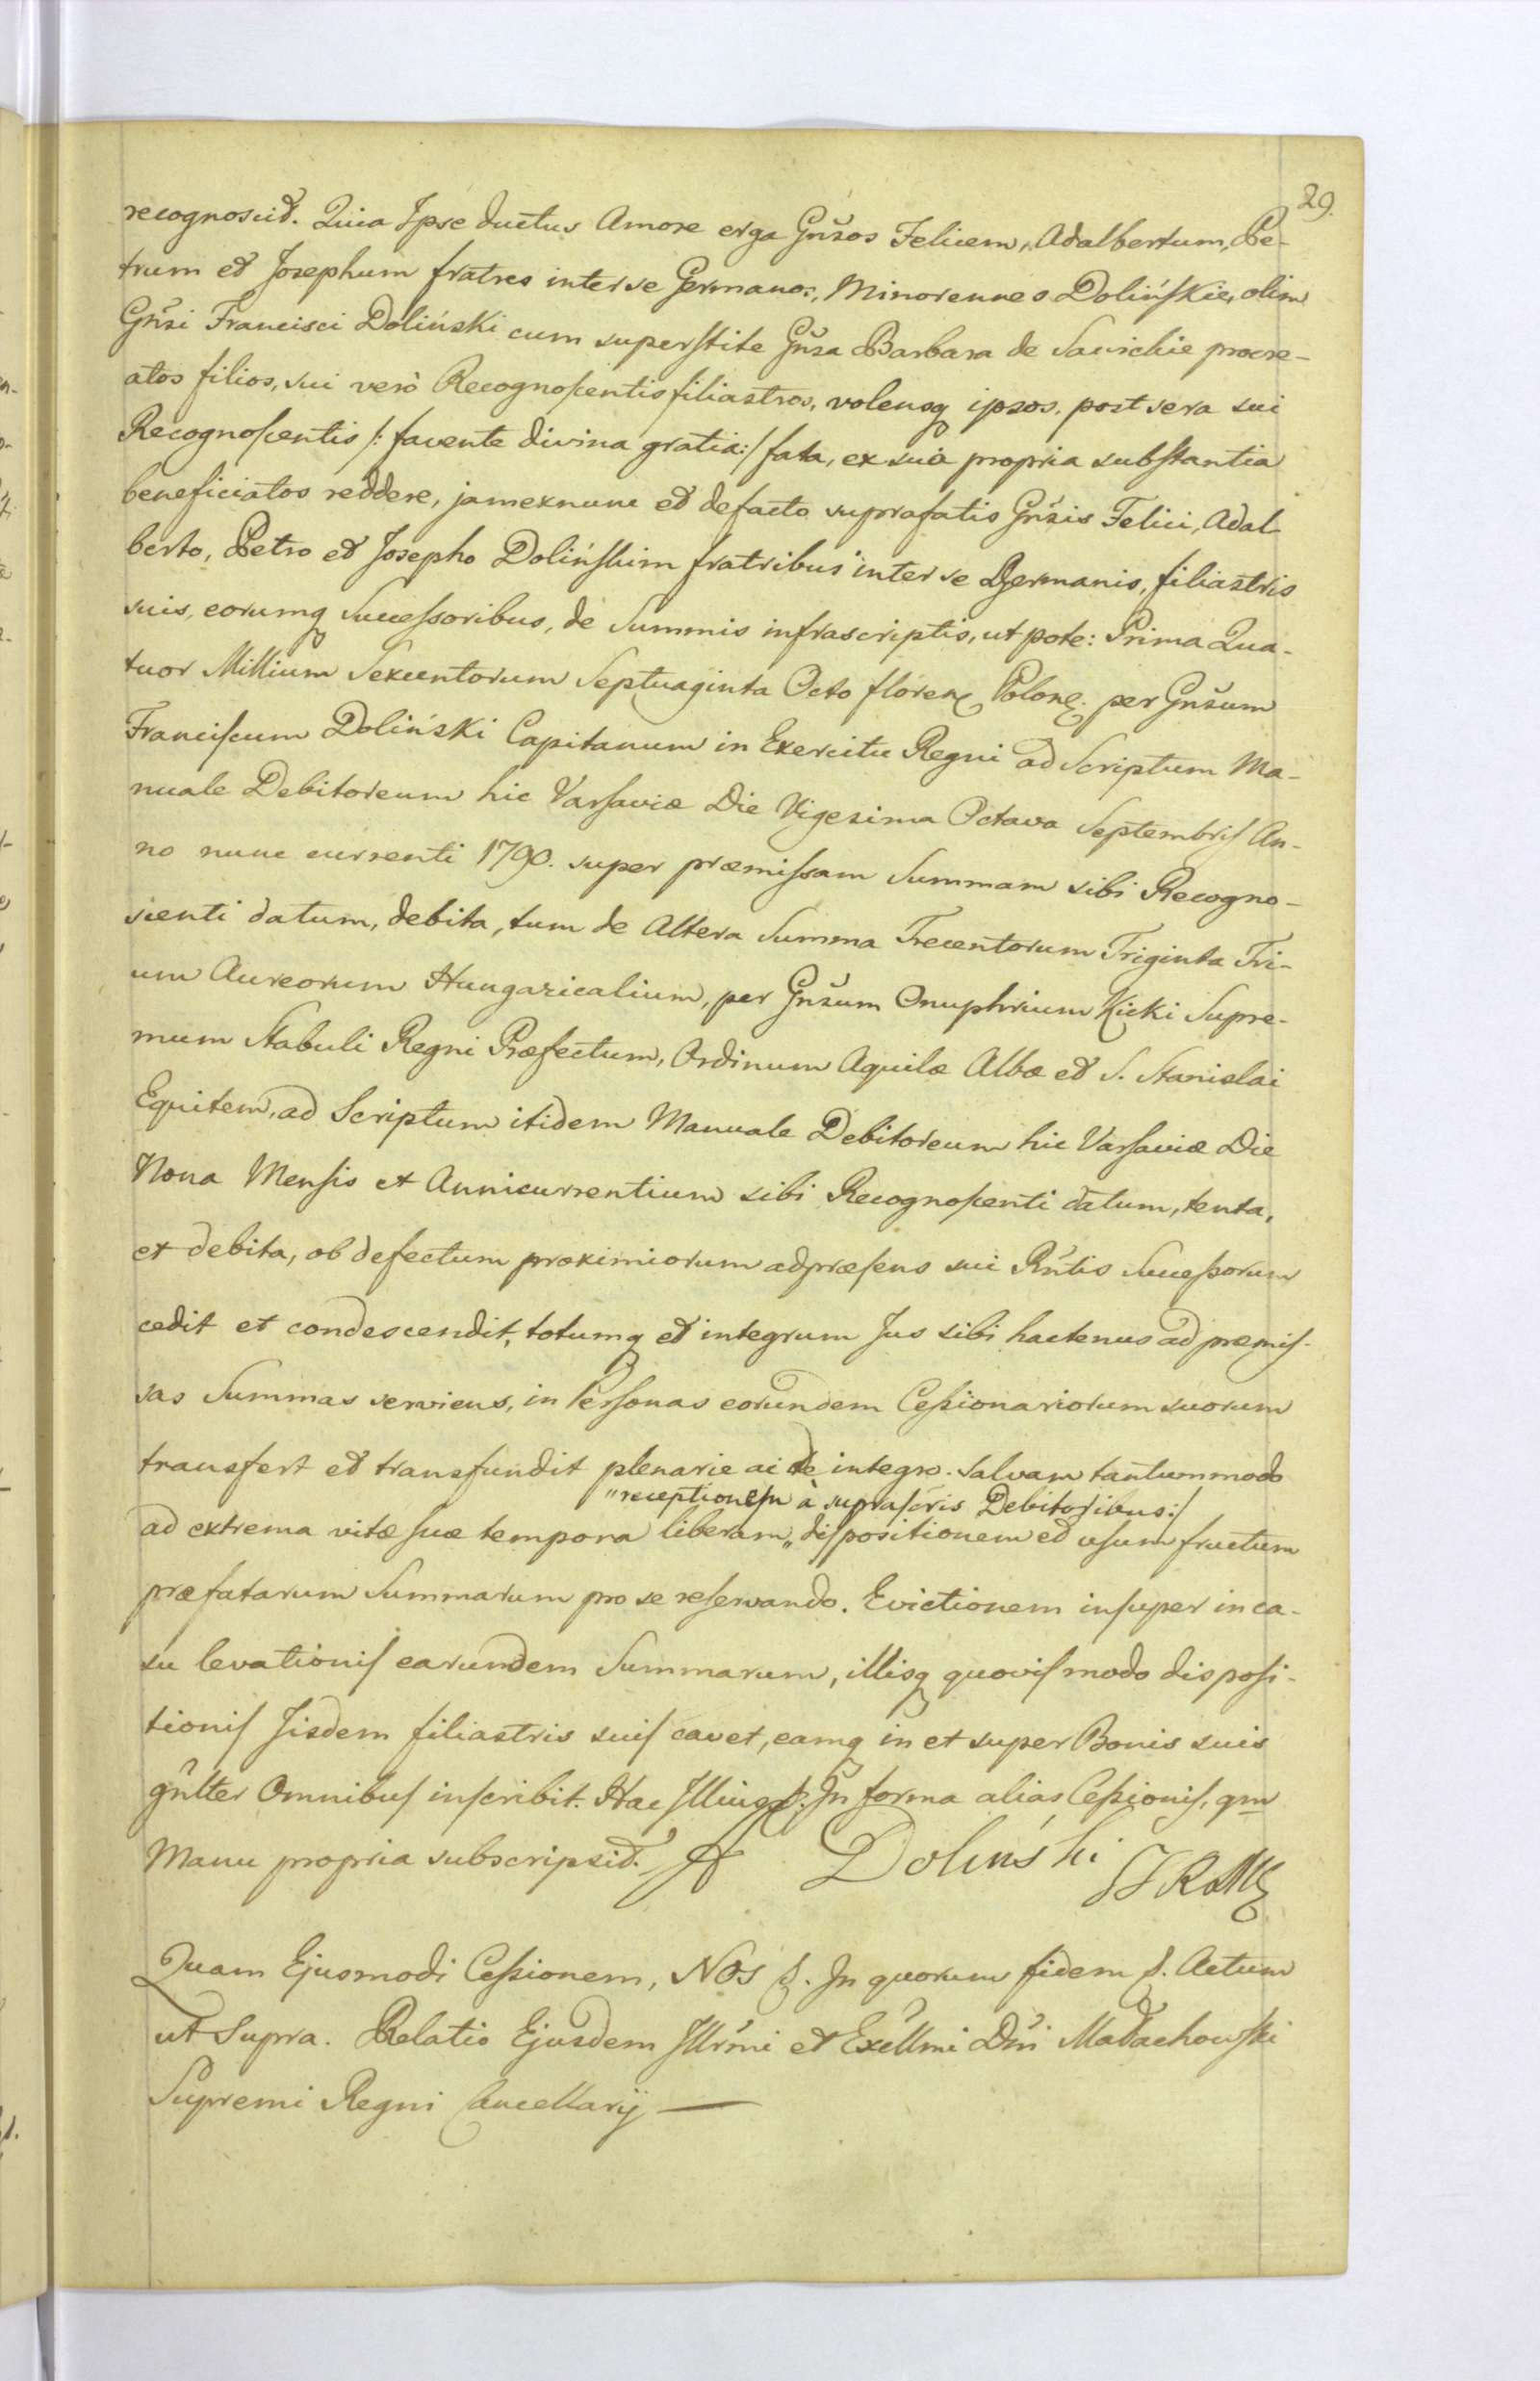 29.
recognoscit. Quia Ipse ductus Amore erga Gñsos Felicem, Adalbertum, Pe-
trum et Josephum fratres inter se Germanos, Minorennes Dolińskie, olim
Gñsi Francisci Doliński cum superstite Gñsa Barbara de Savichie procre-
atos filios, sui verò Recognoscentis filiastros, volensq ipsos, post sera sui
Recognoscentis /: favente divina gratia :/ fata, ex suà propria substantia
beneficiatos reddere, jamexnunc et defacto suprafatis Gñsis Felici, Adal-
berto, Petro et Josepho Dolińskim fratribus inter se Germanis, filiastris
suis, eorumq Successoribus, de Summis infrascriptis, ut pote: Prima Qua-
tuor Millium Sexcentorum Septuaginta Octo floren Polon. per Gñsum
Franciscum Doliński Capitanum in Exercitu Regni ad Scriptum Ma-
nuale Debitoreum hic Varsaviæ Die Vigesima Octava Septembris An-
no nunc currenti 1790. super præmissam Summam sibi Recogno-
scenti datum, debita, tum de Altera Summa Trecentorum Triginta Tri-
um Aureorum Hungaricalium, per Gñsum Onuphrium Kicki Supre-
mum Stabuli Regni Præfectum, Ordinum Aquilæ Albæ et S. Stanislai
Equitem, ad Scriptum itidem Manuale Debitoreum hic Varsaviæ Die
Nona Mensis et Annicurrentium sibi Recognoscenti datum, tenta,
et debita, ob defectum proximiorum adpræsens sui Rñtis Successorum
cedit et condescendit, totumq et integrum Jus sibi hactenus ad præmis-
sas Summas serviens, in Personas eorundem Cessionariorum suorum
transfert et transfundit plenarie ac de integro. Salvam tantummodo
„receptionem à suprascris Debitoribus:/
ad extrema vitæ suæ tempora liberam„ dispositionem et usum fructum
præfatarum Summarum pro se reservando. Evictionem insuper in ca-
su levationis earundem Summarum, illisq quovis modo disposi-
tionis Iisdem filiastris suis cavet, eamq in et super Bonis suis
gñlter Omnibus inscribit. Hac Illius. In forma alias Cessionis, qm
Manu propria subscripsit. Doliński
Quam Ejusmodi Cessionem, NOS. In quorum fidem. Actum
ut Supra. Relatio Ejusdem Illr̃mi et Exĉllmi Dñi Małachowski
Supremi Regni Cancellarij —